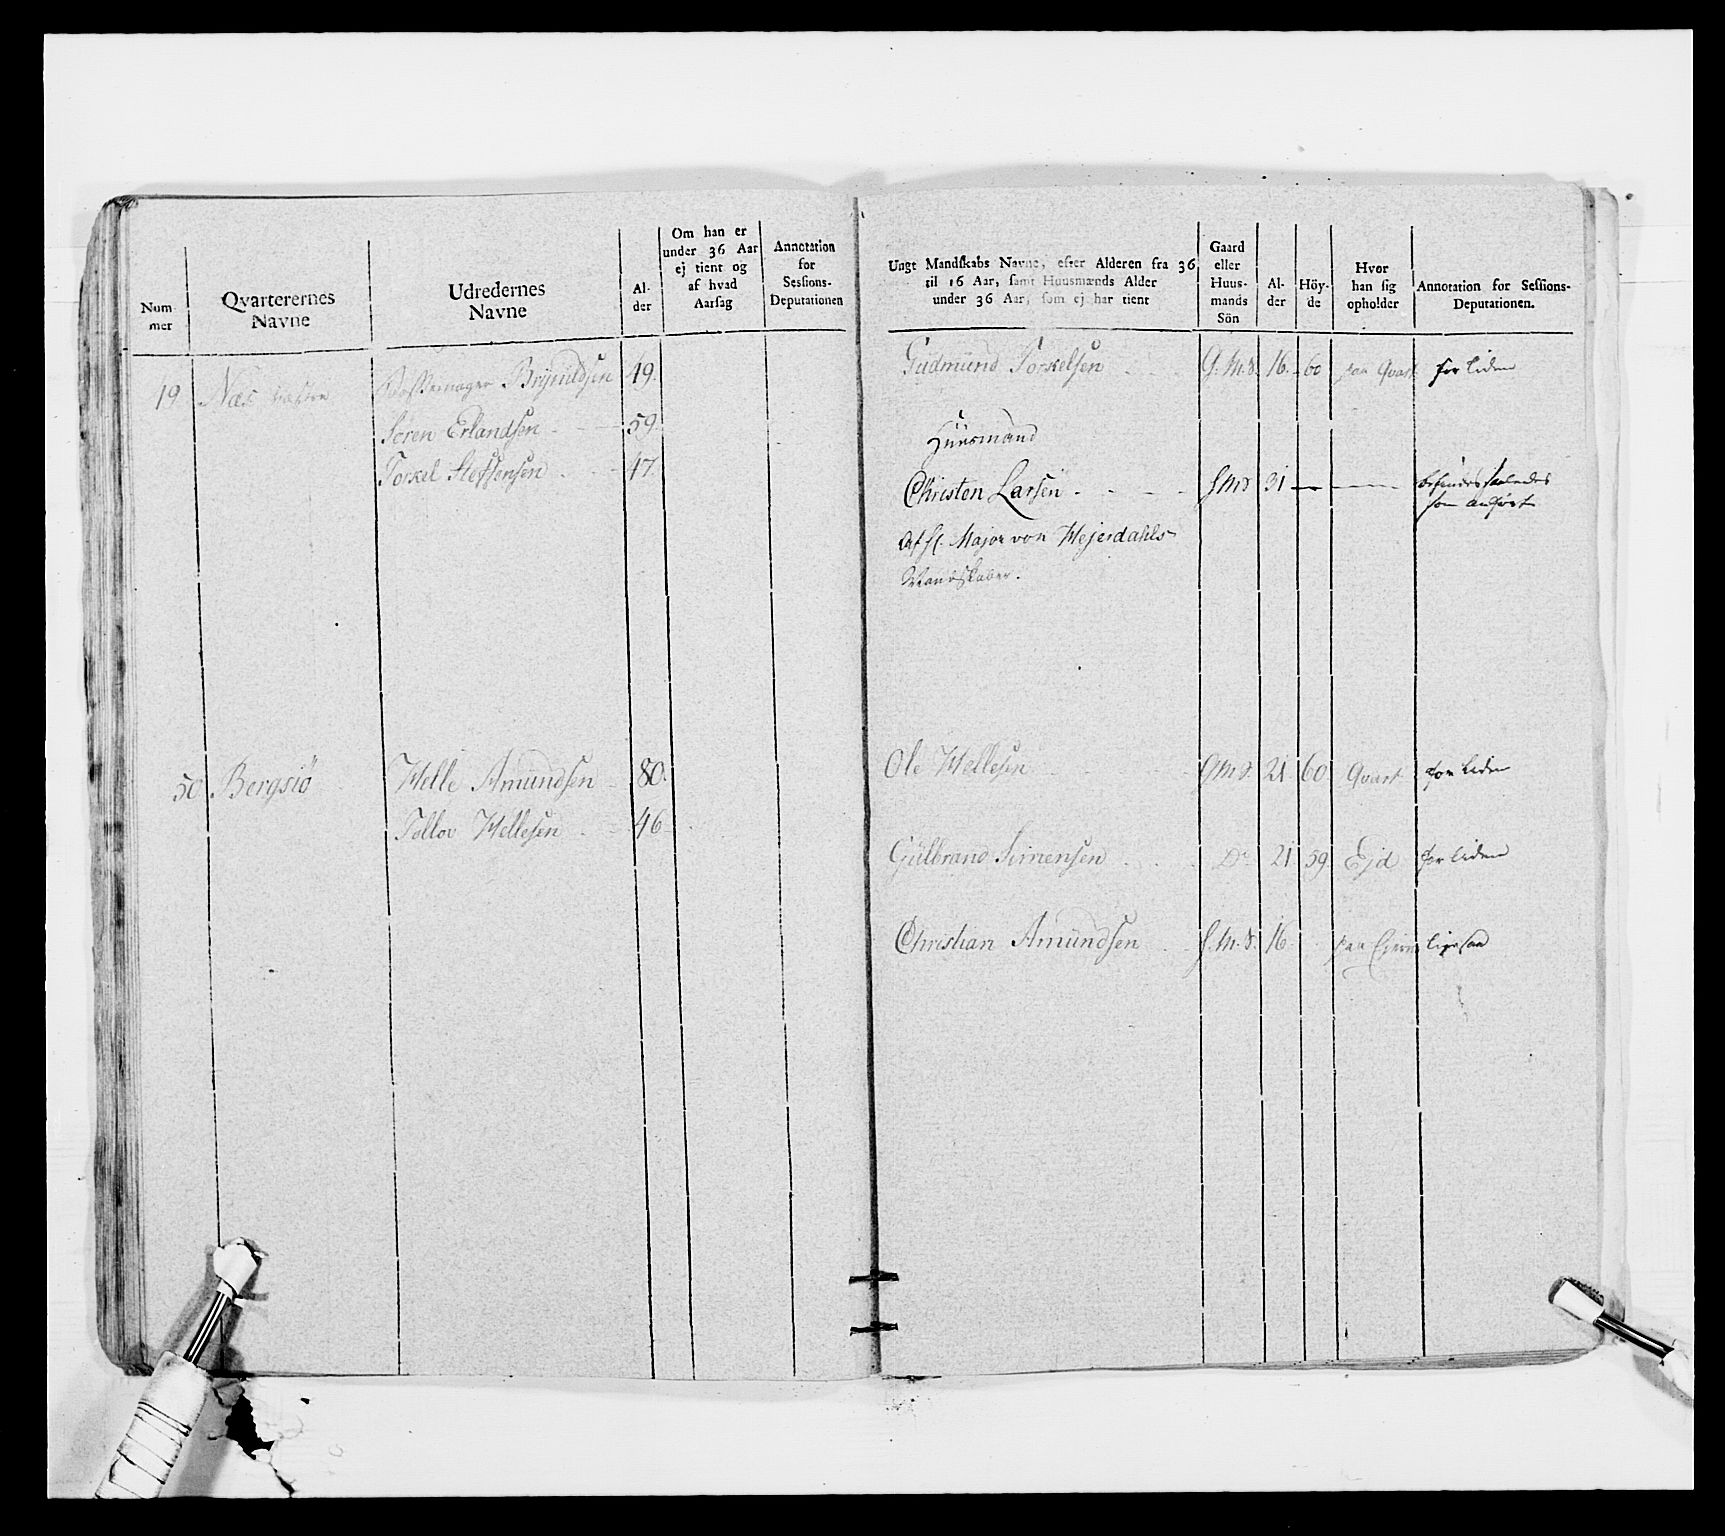 Num-
mer
Qvarterernes
Navne
Udredernes
Navne
Al-
der
Om han er
under 36 Aar
ej tient og
af hvad
Aarsag
Annotation
for
Sessions-
Deputationen
19 Næs
Brynildsen 49.
Søren Erlandsen 59.
Torkel Steffensen 47
50 Bergsiö Helle Amundsen 80.
Tollov Hellesen 46
Ungt Mandskabs Navne, efter Alderen fra 36
til 16 Aar, samt Huusmænds Alder
under 36 Aar, som ej har tient
Gaard
eller
Huus-
mands
Sön
Al-
der
Höy-
de
Hvor
han sig
opholder
Annotation for Sessions-
Deputationen.
Gudmund Torkelsen G.M.S. 16. 60 paa Qvart for liden
Huusmand
Christen Larsen HMS 31 befindes saaledes
som anført
Af H. Major von Hejerdahls
Mandskaber.
Ole Hellesen GMS. 21 60. Qvart for liden
Gulbrand Simensen Do 21 59. Ejd for liden
Christian Amundsen H.M.S. 16. paa ligesaa